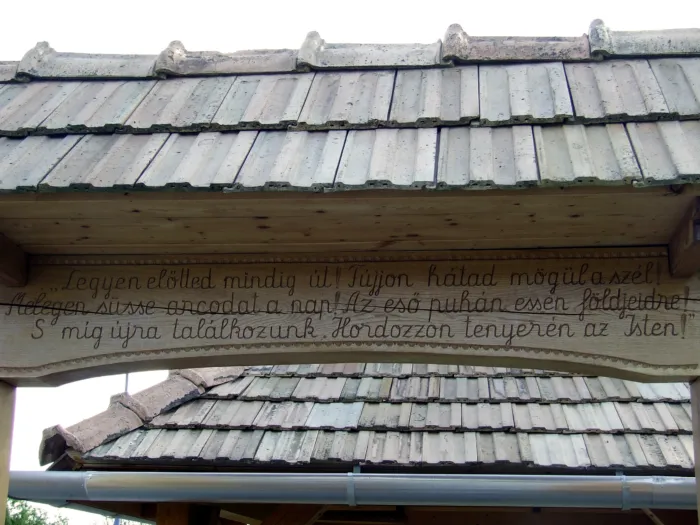 „Legyen előtted mindig út! Fújjon hátad mögül a szél!
Melegen süsse arcodat a nap! Az eső puhán essen földjeidre!
S míg újra találkozunk, Hordozzon tenyerén az Isten!"